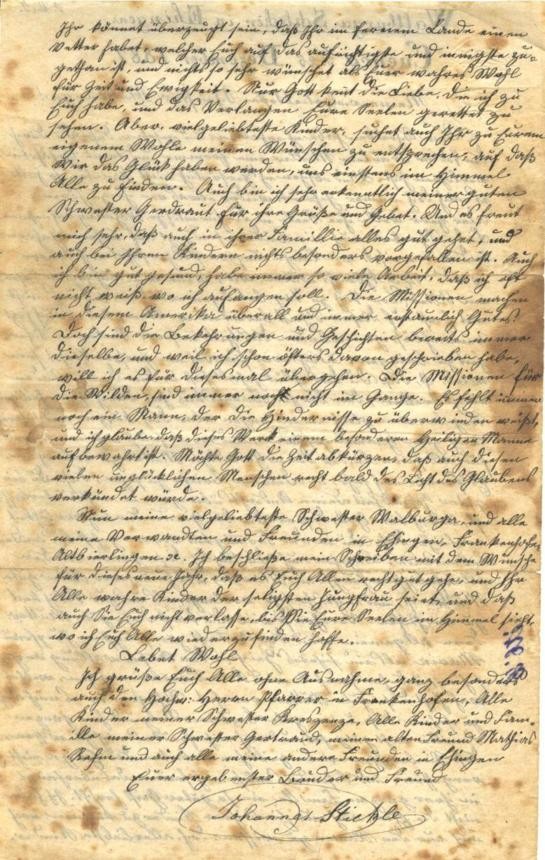 Ihr könnet überzeugt sein, daß Ihr im fernem Lande einen
Vetter habet, welcher Euch auf das aufrichtigste und innigste zu-
gethan ist, und nichts so sehr wünschet als Euer wahres Wohl
für Zeit und Ewigkeit. Nur Gott kent die Liebe, die ich zu
Euch habe, und das Verlangen Eure Seelen gerettet zu
sehen. Aber, vielgeliebteste Kinder, suchet auch Ihr zu Eurem
eigenem Wohle meinen Wünschen zu entsprechen, auf daß
Wir das Glük haben werden, uns einstens im Himmel
Alle zu finden. Auch bin ich sehr erkentlich meiner guten
Schwester Gerdraut für ihre Grüße und Gebet. Und es freut
mich sehr, daß auch in ihrer Famillie alles gut gehet, und
auch bei Ihren Kindern nichts besonders vorgefallen ist. Auch
ich bin gut gesund, habe immer so viele Arbeit, daß ich oft
nicht weiß wo ich anfangen soll. Die Missionen machen
in diesem Amerika überall und immer erstaunlich Gutes.
Doch sind die Bekehrungen und Geschichten bereits immer
dieselbe, und weil ich schon öfters davon geschrieben habe,
will ich es für dieses mal übergehen. Die Missionen für
die Wilden, sind immer noch nicht im Gange. Es fehlt immer
noch ein Mann, der die Hindernisse zu überwinden weißt,
und ich glaube daß dieses Werk einem besonderen Heiligen Manne
aufbewahrt ist. Möchte Gott die Zeit abkürzen, daß auch diesen
vielen unglücklichen Menschen recht bald das Licht des Glaubens
verkündet würde.
Nun meine vielgeliebteste Schwester Walburga, und alle
meine Verwandten und Freunden in Ehingen, Frankenhofen,
Altbierlingen &c. Ich beschließe mein Schreiben mit dem Wunsche
für dieses neue Jahr, daß es Euch Allen recht gut gehe, und Ihr
Alle wahre Kinder der seligsten Jungfrau seiet, und daß
auch Sie Euch nicht verlasse, bis Sie Eure Seelen im Himmel sieht,
wo ich Euch Alle wiederzufinden hoffe.
Lebet Wohl
Ich grüße Euch Alle ohne Ausnahme, ganz besonders
auch den Hochw: Herrn Pfarrer in Frankenhofen, Alle
Kinder meiner Schwester Kreszenze, Alle Kinder und Fam-
ille meiner Schwester Gertraud, meinen alten Freund Mathias
und auch alle meine andere Freunden in Ehingen
Euer ergebenster Bruder und Freund
Stickle